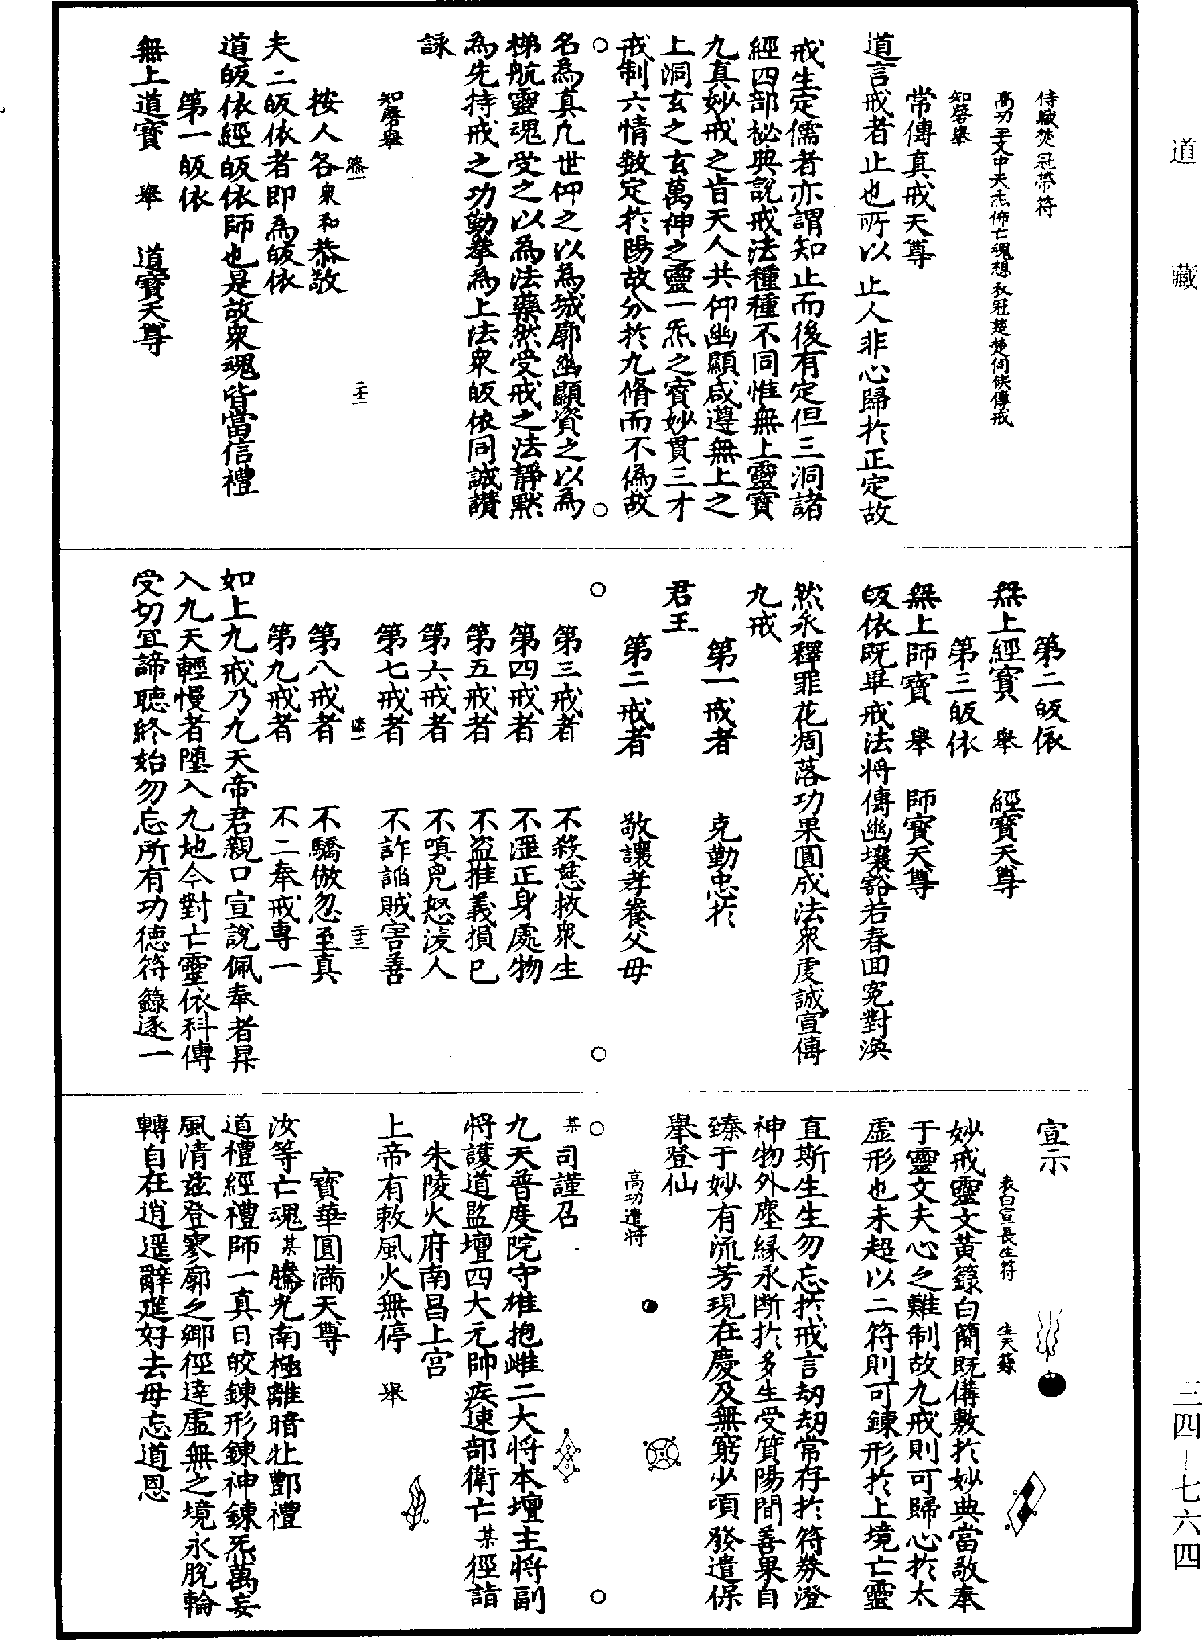 道藏
三四-七六四
侍職焚冠帶符
知磬舉
常傳真戒天尊
道言戒者止也所以止人非心歸於正定故
戒生定儒者亦謂知止而後有定但三洞諸
經四部祕典說戒法種種不同惟無上靈寶
九真妙戒之旨天人共仰幽顯咸遵無上之
上洞玄之玄萬神之靈一炁之寶妙貫三才
戒制六情數定於陽故分於九脩而不偽故
名為真九世仰之以為城廓幽顯資之以為
梯航靈魂受之以為法藥然受戒之法靜默
為先持戒之功勤拳為上法衆皈依同誠讚
詠
知磬舉
按人各衆和恭敬
夫二皈依者即為皈依
道皈依經皈依師也是故衆魂皆當信禮
第一皈依
無上道寶 舉 道寶天尊
二十二
第二皈依
無上經寶 舉 經寶天尊
第三皈依
無上師寶 舉 師寶天尊
皈依既畢戒法將傳幽壤豁若春回冤對渙
然永釋罪花凋落功果圓成法衆虔誠宣傳
九戒
第一戒者 克勤忠於
君王
第二戒者 敬讓孝養父母
第三戒者 不殺慈救衆生
第四戒者 不淫正身處物
第五戒者 不盜推義損己
第六戒者 不嗔兇怒凌人
第七戒者 不詐諂賊害善
第八戒者 不驕傲忽至真
第九戒者 不二奉戒專一
二十三
如上九戒乃九天帝君親口宣說佩奉者昇
入九天輕慢者墮入九地今對亡靈依科傳
受切宜諦聽終始勿忘所有功德符籙逐一
宣示
表白宣長生符 生天籙
妙戒靈文黃籙白簡既備敷於妙典當敬奉
于靈文夫心之難制故九戒則可歸心於太
虛形也未超以二符則可鍊形於上境亡靈
直斯生生勿忘於戒言劫劫常存於符券澄
神物外塵緣永斷於多生受質陽間善果自
臻于妙有流芳現在慶及無窮少頃發遣保
舉登仙
高功遣將
某司謹召
九天普度院守雄抱雌二大將本壇主將副
將護道監壇四大元帥疾速部衛亡某徑詣
朱陵火府南昌上宮
上帝有敕風火無停 舉
寶華圓滿天尊
汝等亡魂某騰光南極離暗北酆禮
道禮經禮師一真日皎鍊形鍊神鍊炁萬妄
風清茲登寥廓之鄉徑達虛無之境永脫輪
轉自在逍遥辭遐好去毋忘道恩